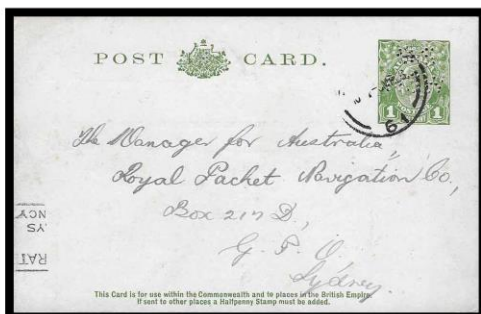 POST CARD.
1 1
61
The Manager for Australia,
Royal Packet Navigation Co.,
Box 217 D.,
G. P. O.
Sydney.
RAT
YS
NCY
This Card is for use within the Commonwealth and to places in the British Empire.
If sent to other places a Halfpenny Stamp must be added.